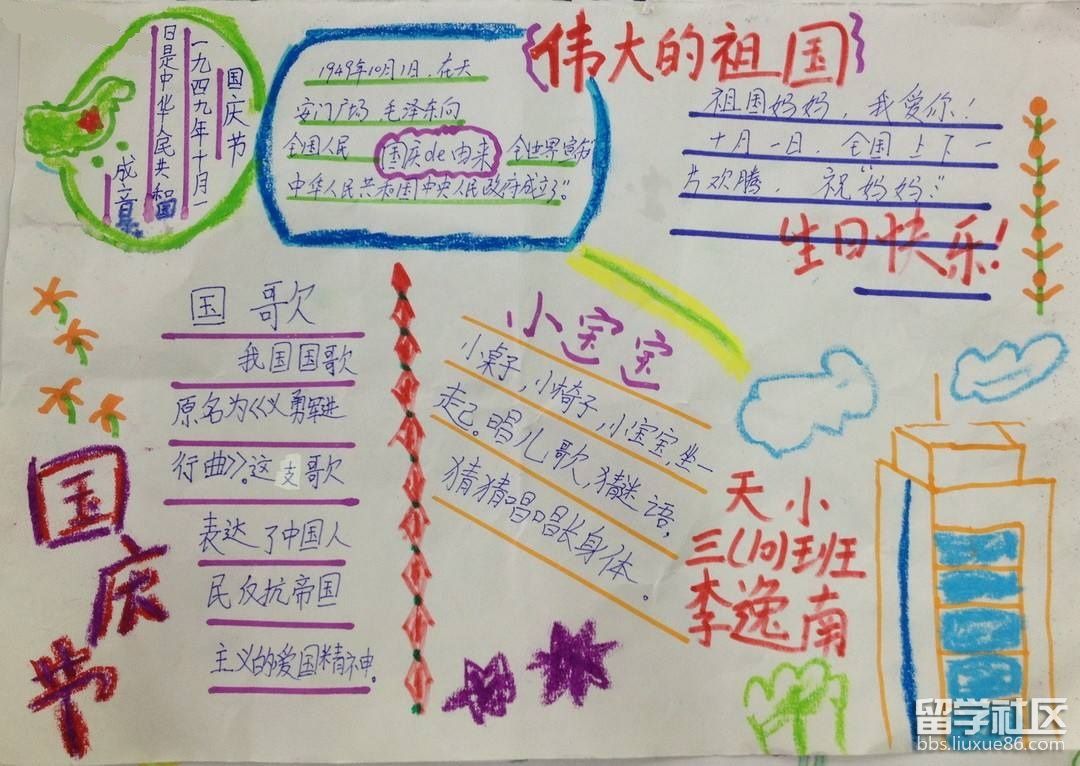 伟大的祖国
国庆节
一九四九年十月一
日是中华人民共和国
成立
1949年10月1日,在天
安门广场 毛泽东向
全国人民
国庆de由来
全世界宣布
中华人民共和国中央人民政府成立了"。
祖国妈妈,我爱你!
十月一日,全国上下一
片欢腾,祝"妈妈":
生日快乐!
国歌
我国国歌
原名为《义勇军进
行曲》。这支歌
表达了中国人
民反抗帝国
主义的爱国精神。
小宝宝
小桌子,小椅子,小宝宝,坐一
起。唱儿歌,猜谜语,
猜猜唱唱长身体。
国庆节
天小
三(10)班
李逸南
留学社区
bbs.liuxue86.com